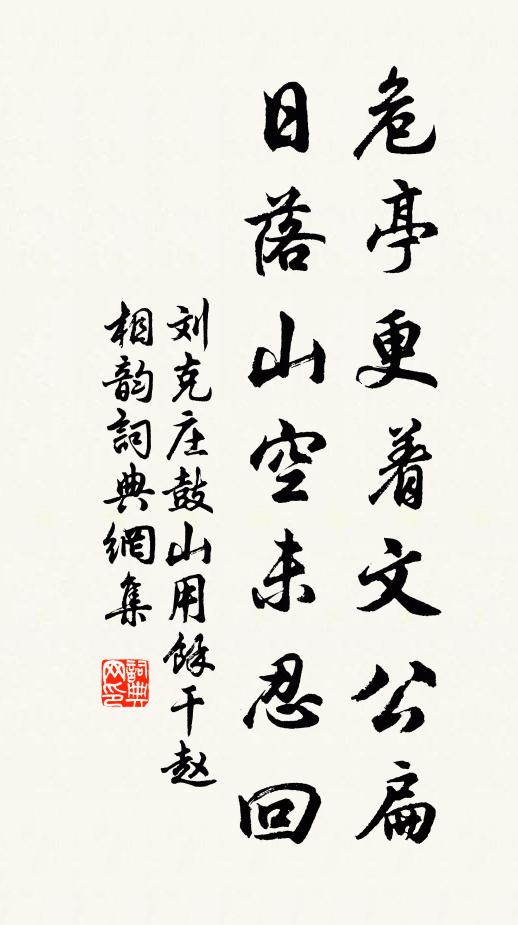 危亭更着文公扁
日落山空未忍回
刘克庄鼓山用馀干赵
相韵詞典網集
詞典网印